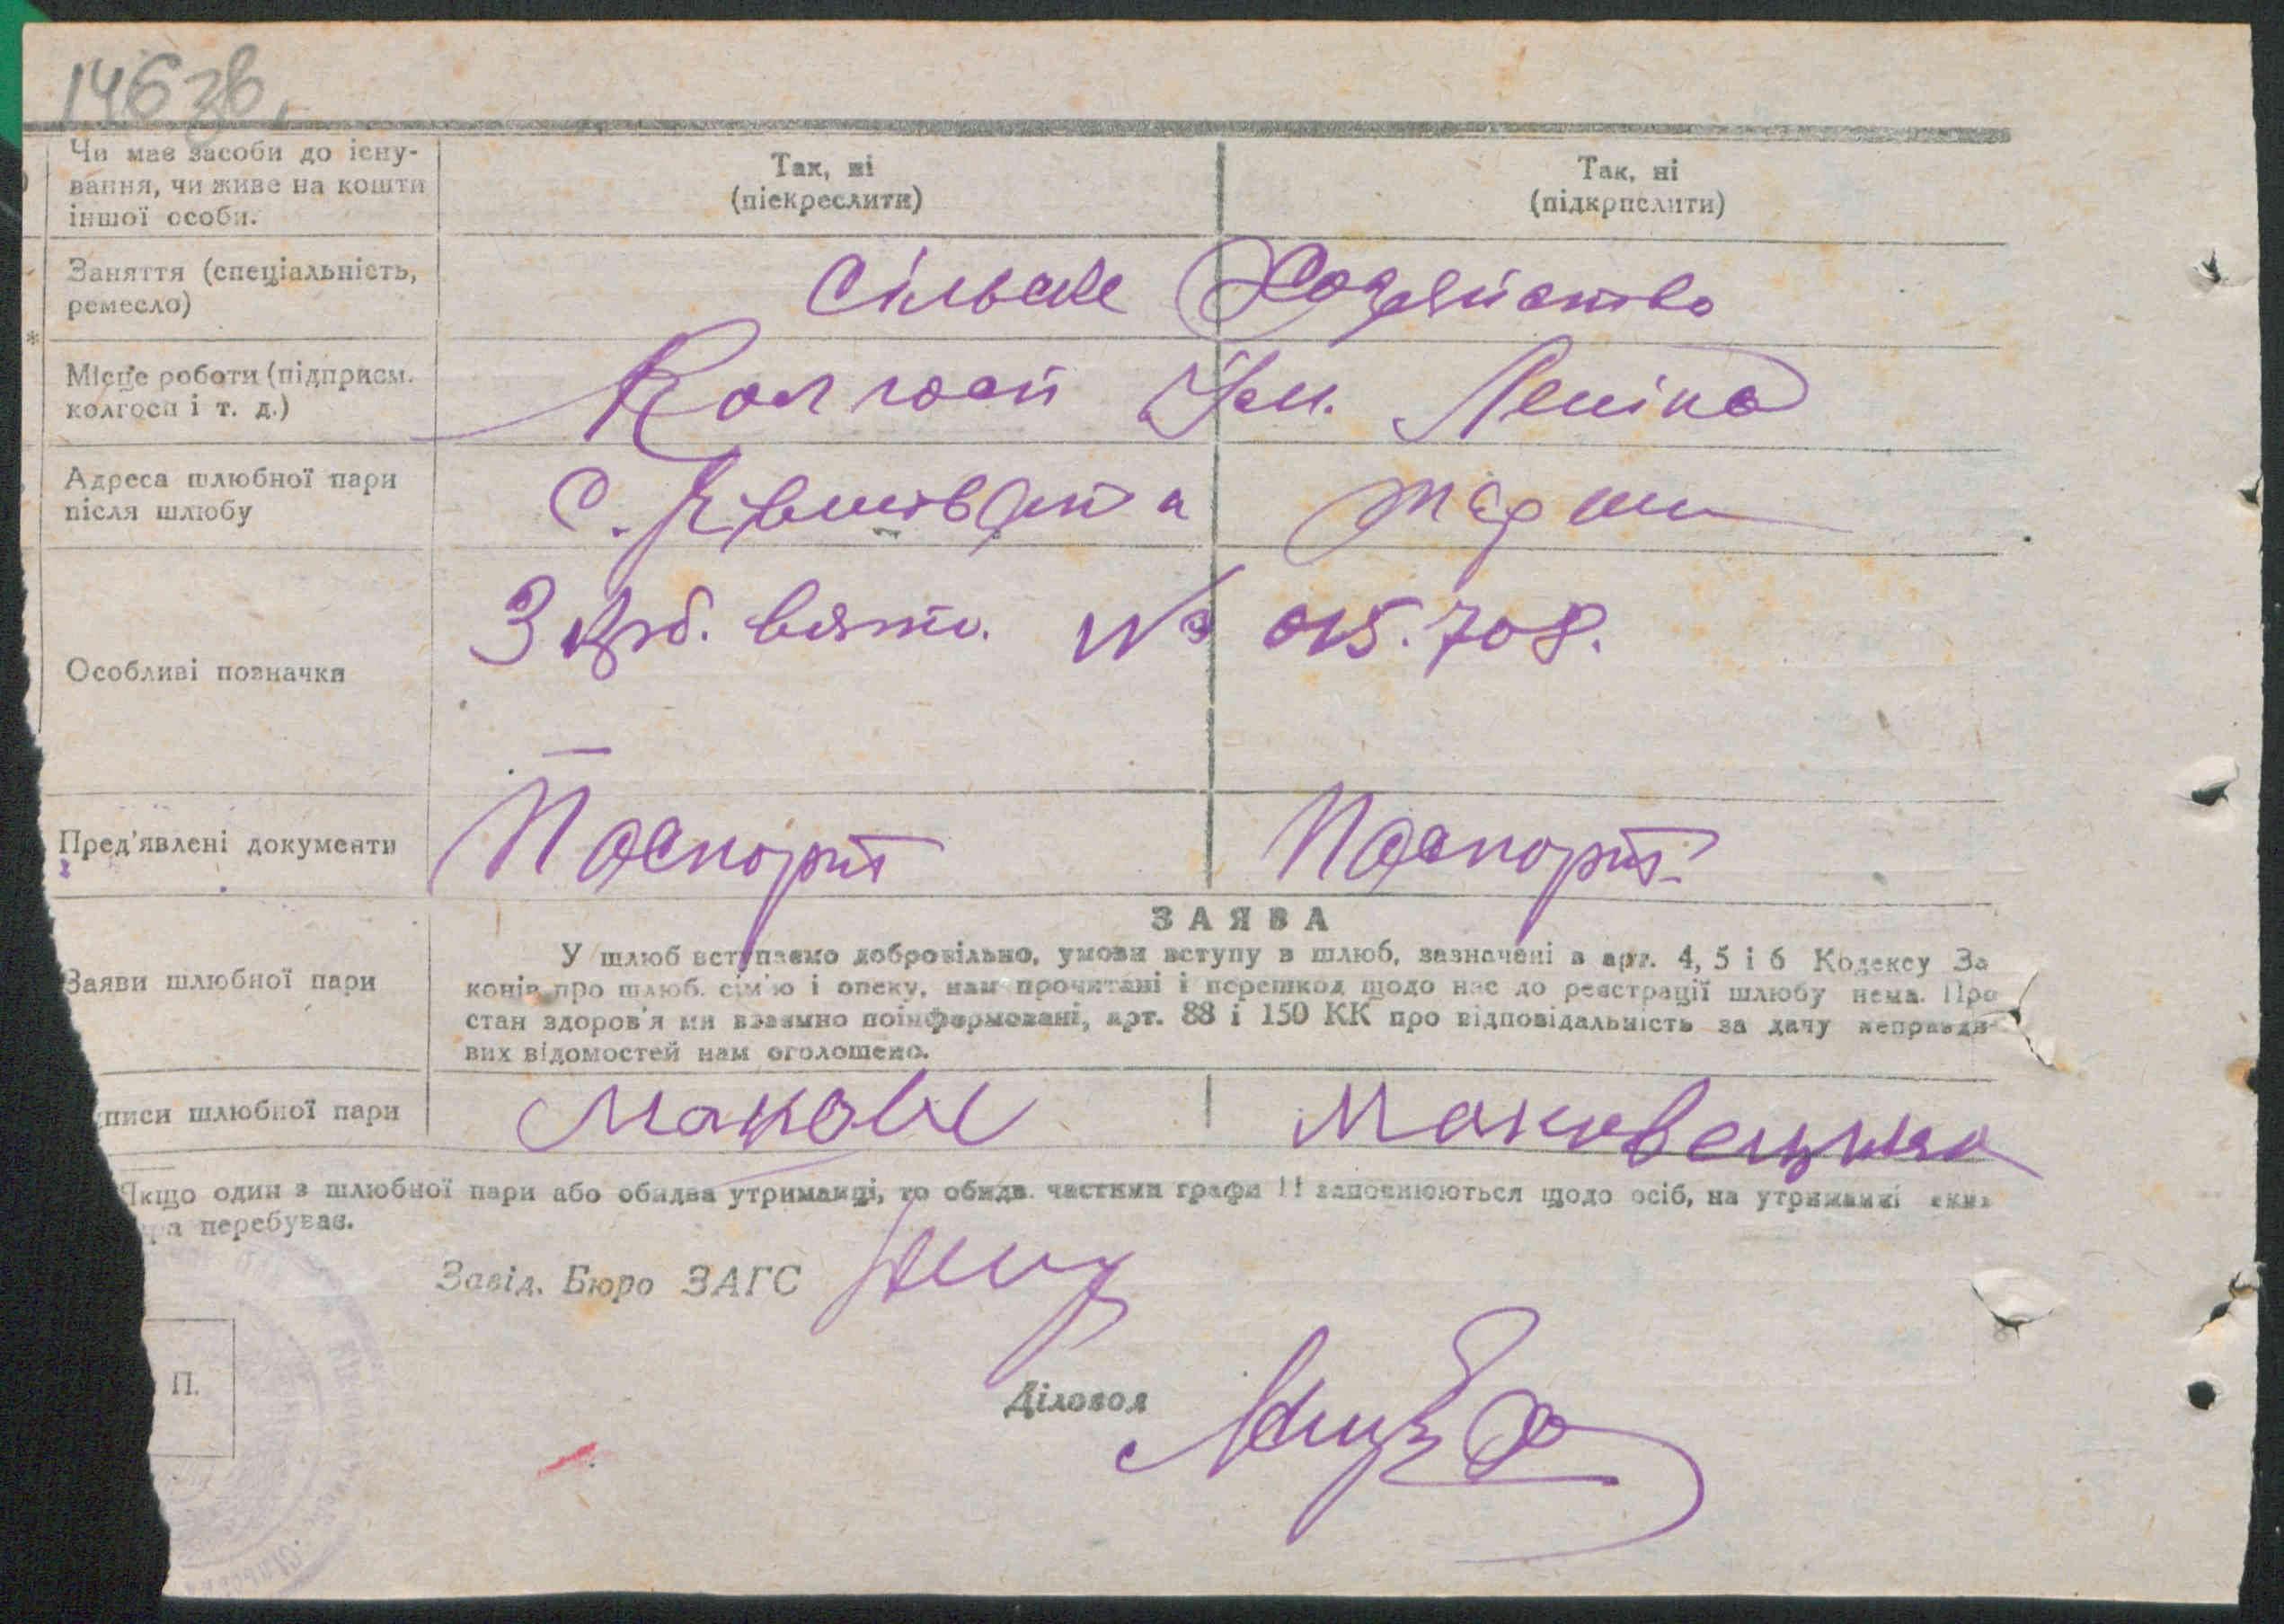 146 зв.
Чи має засоби до існу-
вання, чи живе на кошти
іншої особи.
Так, ні
(піекреслити)
Так, ні
(підкрпслити)
Заняття (спеціальність,
ремесло)
Сільське Хозяйство
Місце роботи (підприєм.
колгосп і т. д.)
Колгосп Ім. Леніна
Адреса шлюбної пари
після шлюбу
С.
Особливі позначки
3 крб. взято. № 015.708.
Пред'явлені документи
Паспорт
Паспорт.
Заяви шлюбної пари
ЗАЯВА
У шлюб вступаємо добровільно, умови вступу в шлюб, зазначені в арт. 4, 5 і 6 Кодексу За
конів про шлюб. сім'ю і опеку, нам прочитані і перешкод щодо нас до реєстрації шлюбу нема. Про
стан здоров'я ми взаємно поінформовані, арт. 88 і 150 КК про відповідальність за дачу неправди-
вих відомостей нам оголошено.
писи шлюбної пари
Макове
Маковецька
Якщо один з шлюбної пари або обидва утриманці, то обидв. частини графи 11 заповнюються щодо осіб, на утриманні яких
ра перебуває.
Завід. Бюро ЗАГС
Діловод
П.